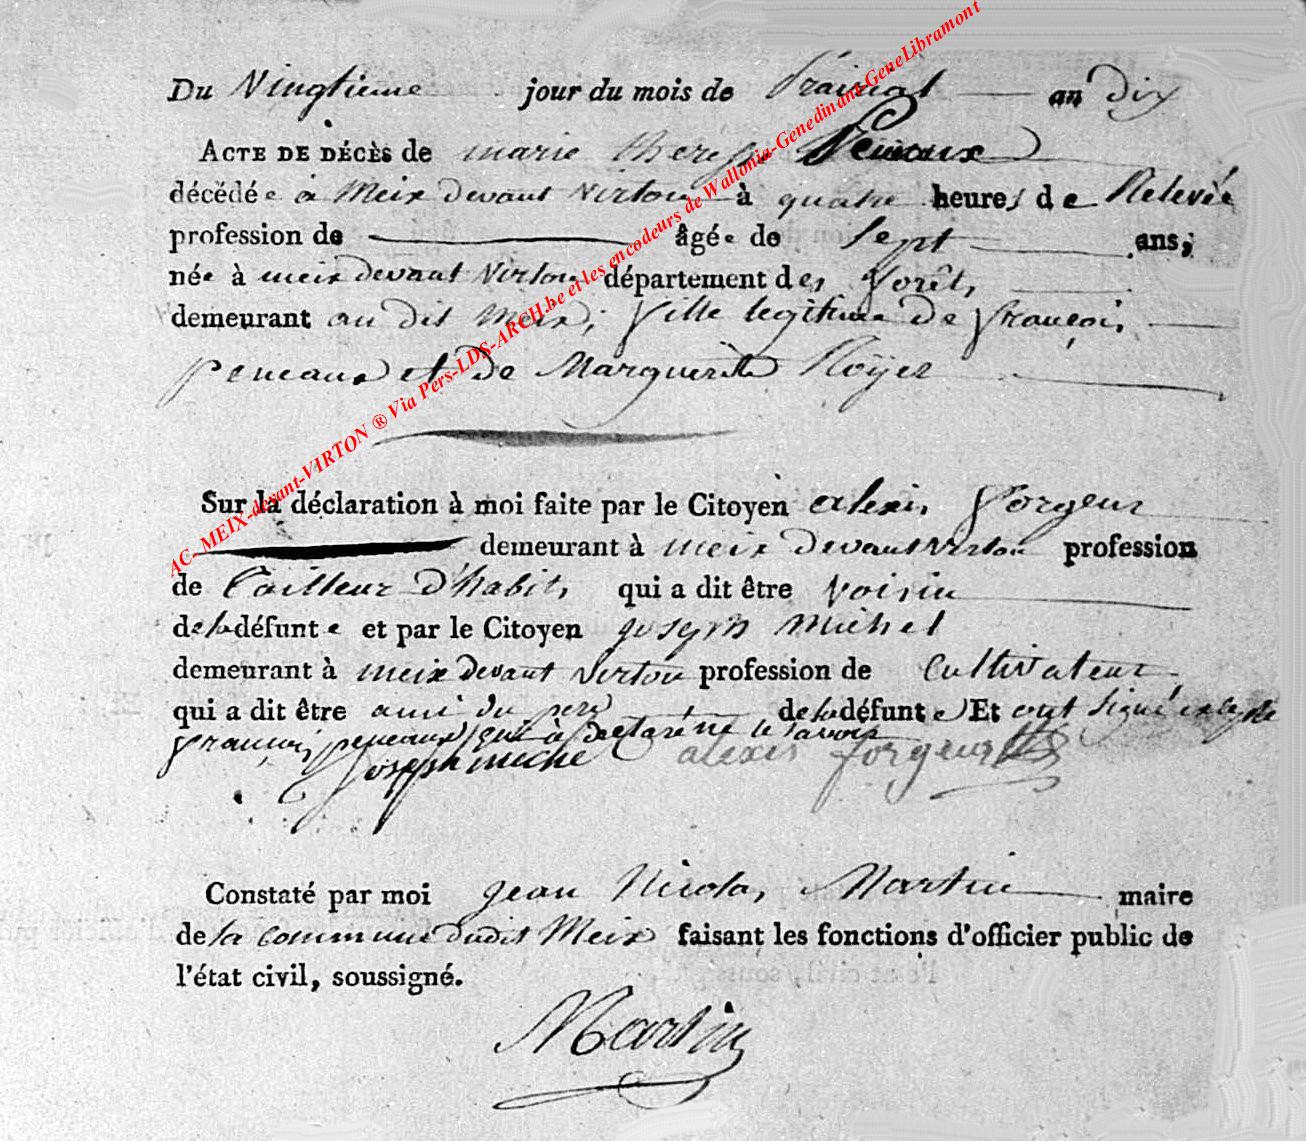 Du Vingtieme jour du mois de frairial an dix
ACTE DE DÉCÈS de marie therese Peneaux
décédée à Meix devant Virton à quatre heures de Relevée
profession de âgée de Sept ans,
née à meix devant Virton département des forêts
demeurant au dit Meix, fille legitime de françois
peneaux et de Marguerite Royer
Sur la déclaration à moi faite par le Citoyen alexis forgeur
demeurant à meix devant virton profession
de tailleur d'habits qui a dit être voisin
de la défunte et par le Citoyen joseph michel
demeurant à meix devant virton profession de Cultivateur
qui a dit être ami du pere de la défunte Et ont signé
françois peneaux qui a declaré ne le savoir
joseph miche alexis forgeur
Constaté par moi jean Nicolas Martin maire
de la commune dudit Meix faisant les fonctions d'officier public de
l'état civil, soussigné.
Martin
AC-MEIX-devant-VIRTON ® Via Pers-LDS-ARCH.be et les encodeurs de Wallonia-Genedinant-GeneLibramont